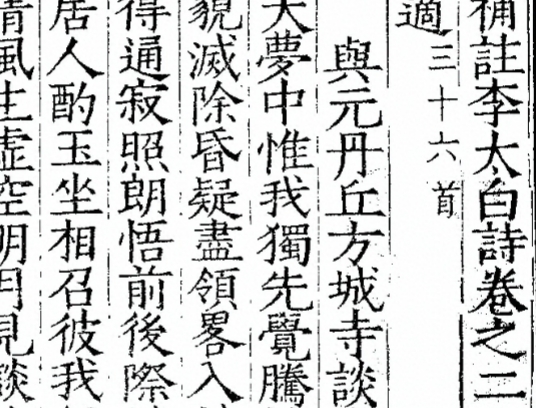 補註李太白詩卷之二
適三十六首
與元丹丘方城寺談
大夢中惟我獨先覺騰
貌滅除昏疑盡領畧入
得通寂照朗悟前後際
居人酌玉坐相召彼我
清風生虛空明月見談